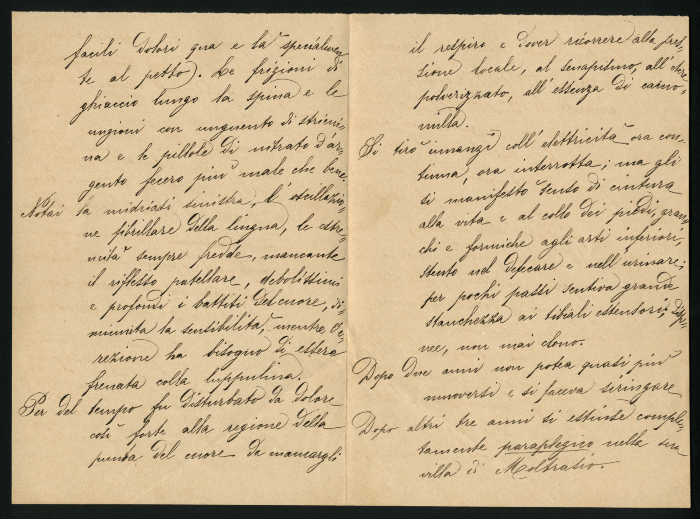 facili dolori qua e là specialmen-
te al petto). Le frizioni di
ghiaccio lungo la spina e le
unzioni con unguento di stricni-
na e le pillole di nitrato d'ar-
gento fecero più male che bene.
Notai la midriasi sinistra, l'oscillazio-
ne fibrillare della lingua, le estre-
mità sempre fredde, mancante
il riflesso patellare, debolissimi
e profondi i battiti del cuore, di-
minuita la sensibilità, mentre l'e-
rezione ha bisogno di essere
frenata colla luppulina.
Per del tempo fu disturbato da dolore
così forte alla regione della
punta del cuore da mancargli
il respiro e dover ricorrere alla fre-
zione locale, al senapismo, all'etere
polverizzato, all'essenza di camo-
milla.
Si tirò innanzi coll'elettricità ora con-
tinua, ora interrotta; ma gli
si manifestò senso di cintura
alla vita e al collo dei piedi, gran-
chi e formiche agli arti inferiori,
stento nel defecare e nell'urinare;
per pochi passi sentiva grande
stanchezza ai tibiali estensori;
nee, non mai clono.
Dopo due anni non potea quasi più
muoversi e si faceva siringare
Dopo altri tre anni si estinse comple-
tamente paraplegico nella sua
villa di Moltrasio.